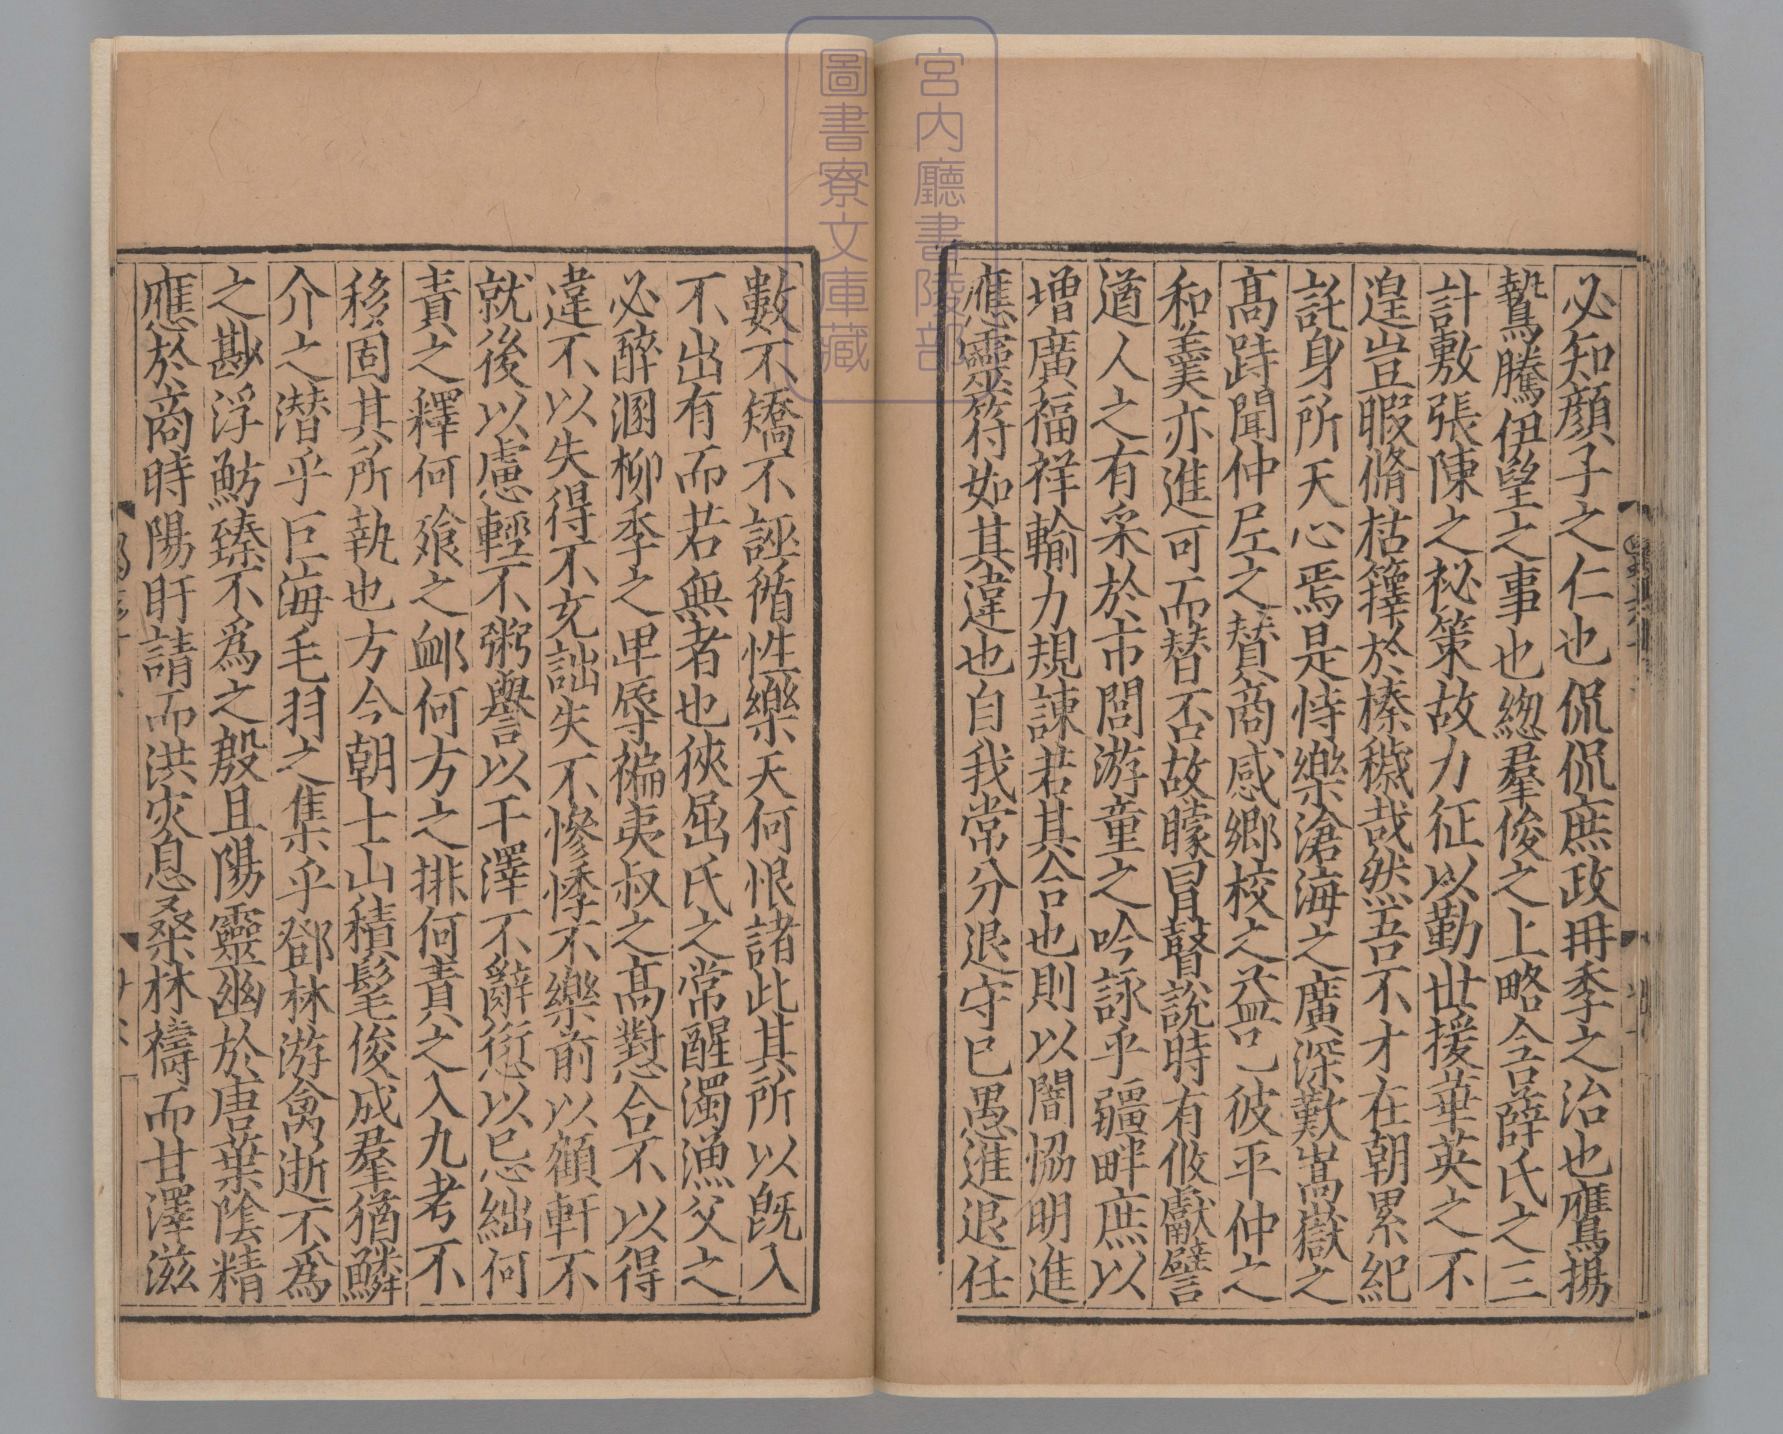 必知顔子之仁也侃侃庶政冉季之治也鷹揚
鷙騰伊望之事也緫羣俊之上略含薛氏之三
計敷張陳之祕策故力征以勤世援華英之不
遑豈暇脩枯籜於榛穢哉然吾不才在朝累紀
託身所天心焉是恃樂滄海之廣深歎嵩嶽之
髙跱聞仲尼之賛商感郷校之益己彼平仲之
和羹亦進可而替否故矇冐瞽說時有攸獻譬
遒人之有采於市閭游童之吟詠乎疆畔庶以
増廣福祥輸力規諫若其合也則以闇恊明進
應靈符如其違也自我常分退守已愚進退任
數不矯不誣循性樂天何恨諸此其所以旣入
不出有而若無者也狹屈氏之常醒濁漁父之
必醉溷柳季之卑辱褊夷叔之髙懟合不以得
違不以失得不充詘失不慘悸不樂前以顧軒不
就後以慮輕不粥譽以干澤不辭愆以忌絀何
責之釋何飱之衈何方之排何責之入九考不
移固其所執也方今朝士山積髦俊成羣猶鱗
介之潜乎巨海毛羽之集乎鄧林游禽逝不爲
之尠浮魴臻不爲之殷且陽靈幽於唐葉隂精
應於商時陽盱請而洪灾息桑林禱而甘澤滋
宮内廳書陵部
圖書寮文庫藏